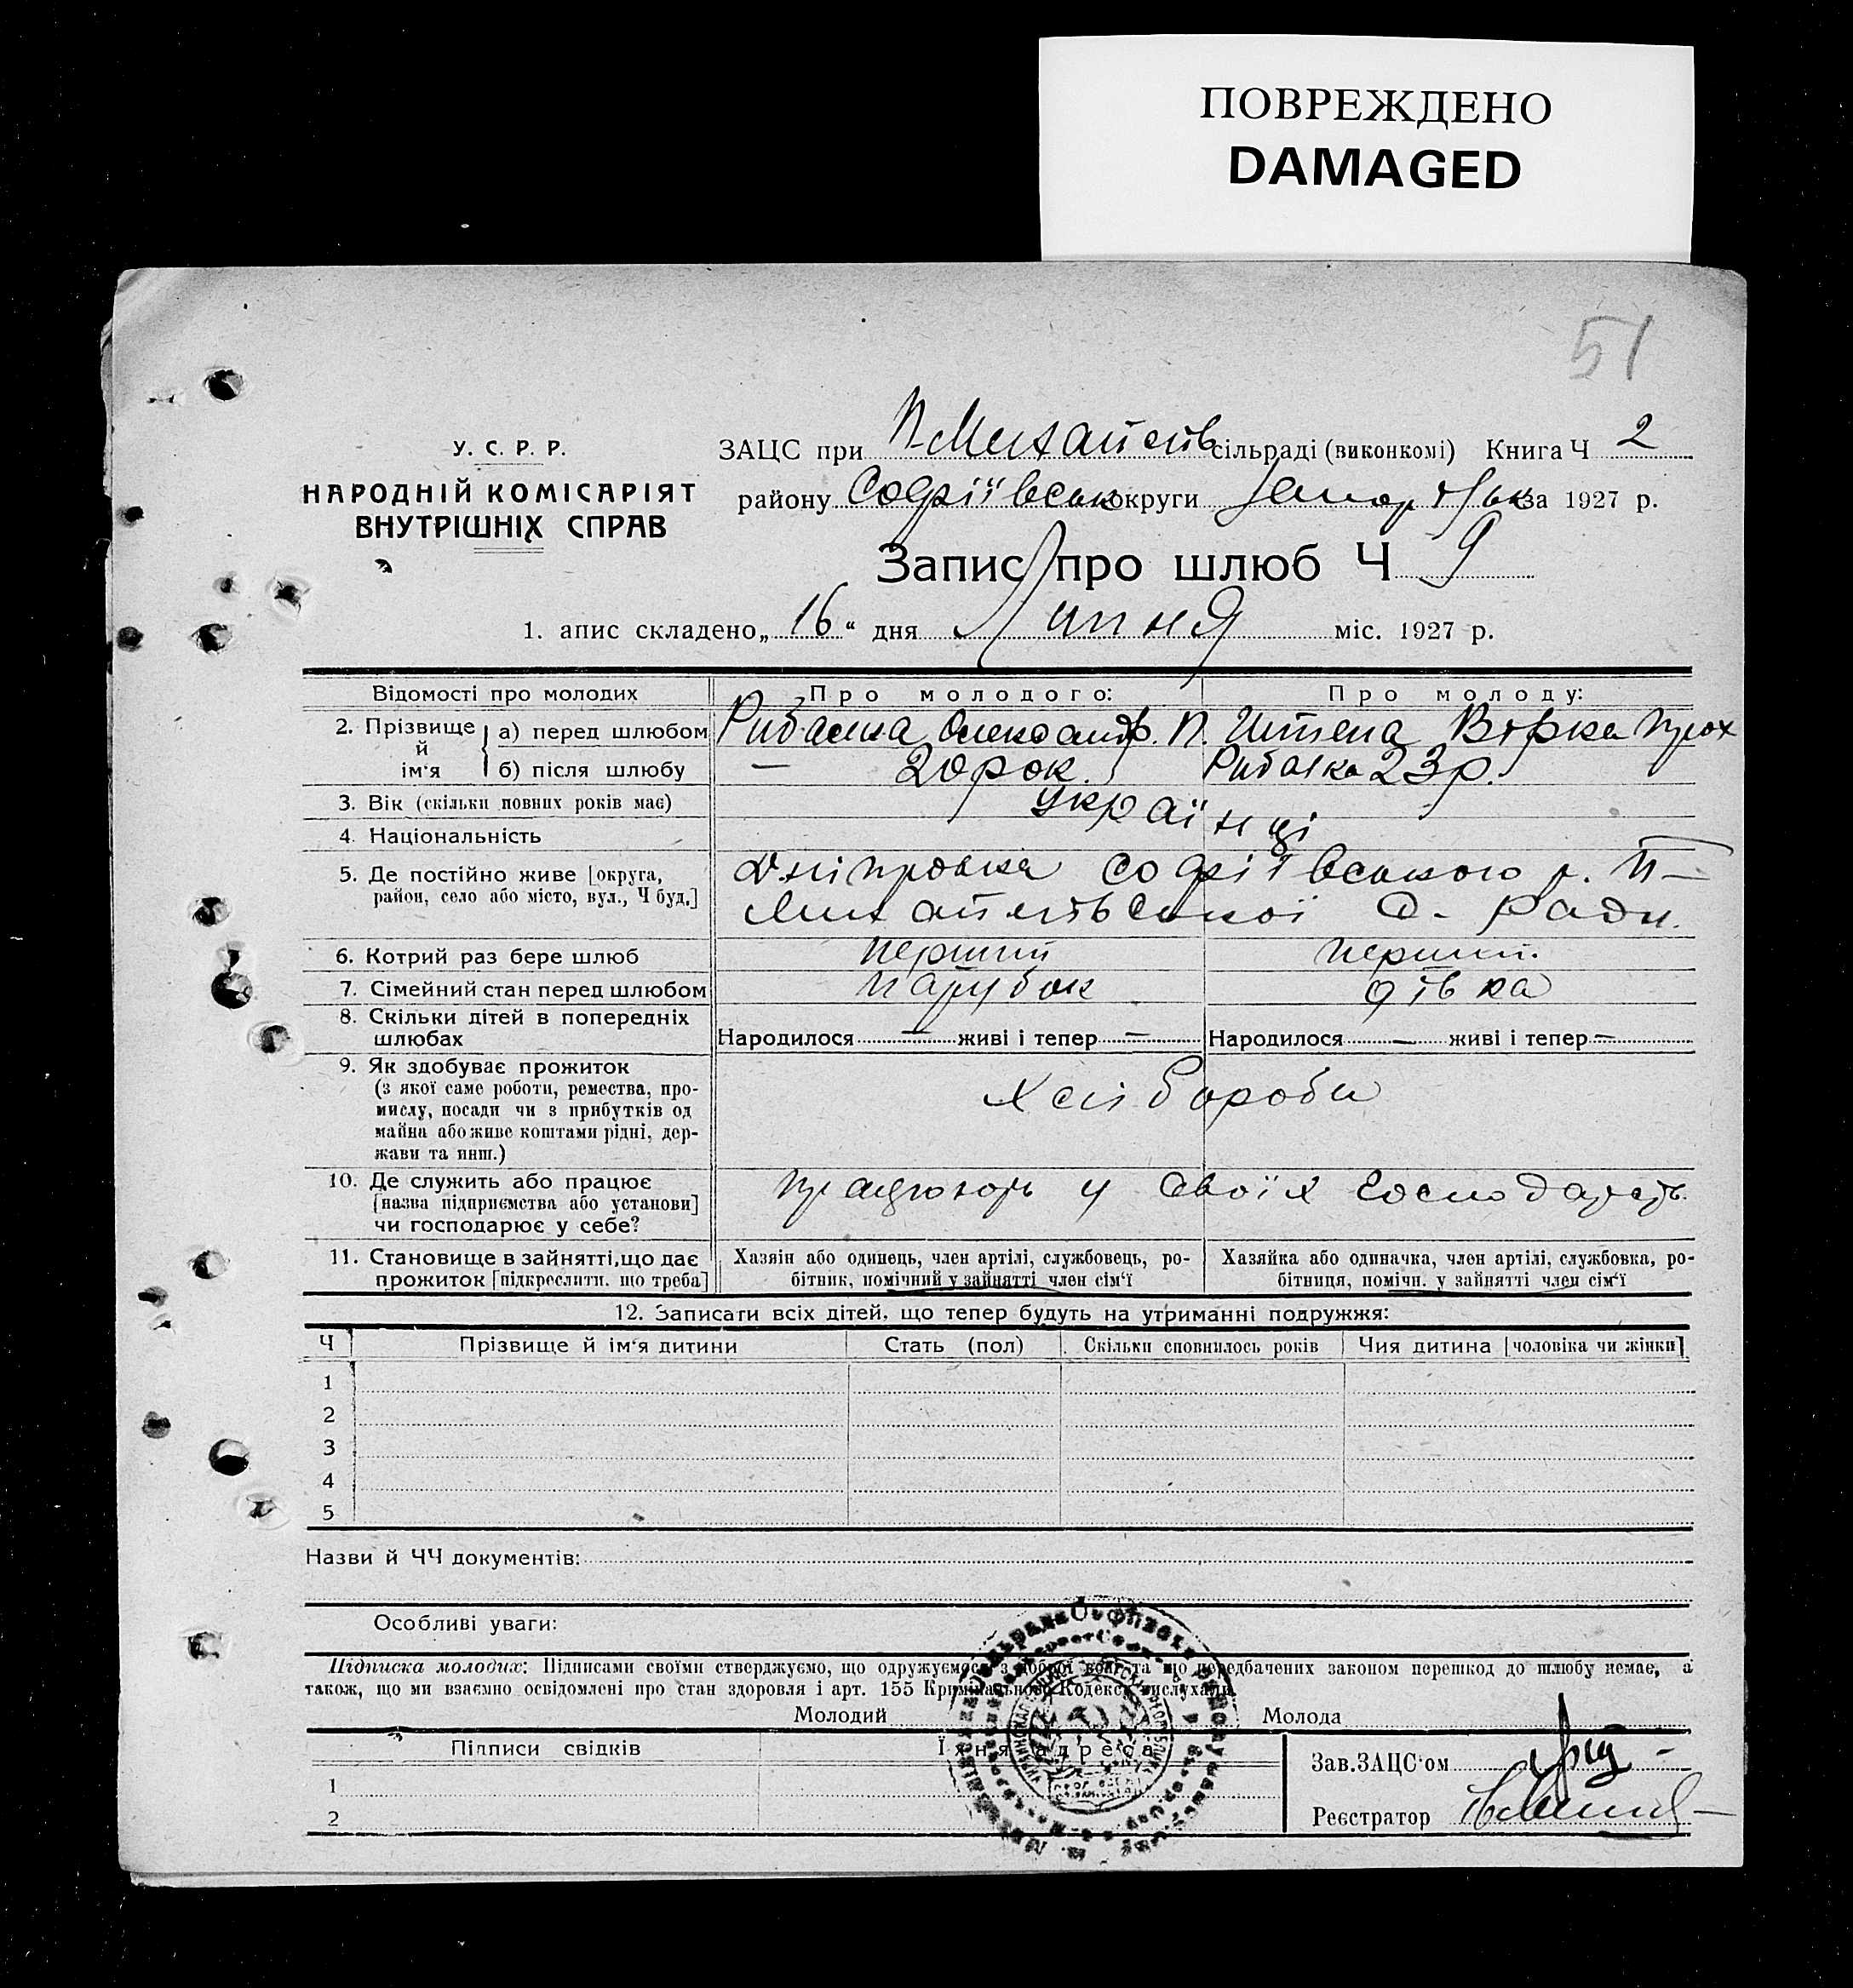 ПОВРЕЖДЕНО
DAMAGED
51
У. С. Р. Р.
НАРОДНІЙ КОМІСАРІЯТ
ВНУТРІШНІХ СПРАВ
ЗАЦС при сільраді (виконкомі) Книга Ч 2
району Софіївськ округи за 1927 р.
Запис про шлюб Ч 9
1. апис складено „ 16 “ дня Липня міс. 1927 р.
Відомості про молодих Про молодого: Про молоду:
2. Прізвище й ім‘я а) перед шлюбом Рибалка Олександр. П. Варка Прох
б) після шлюбу — 20 рок. Рибалка 23 р.
3. Вік (скільки повних років має)
4. Національність Українці
5. Де постійно живе [округа, район, село або місто, вул., Ч буд.] Дніпровка Софіївського р. П-
Михайлівської С. Ради.
6. Котрий раз бере шлюб перший перший.
7. Сімейний стан перед шлюбом парубок дівка
8. Скільки дітей в попередніх шлюбах Народилося — живі і тепер — Народилося — живі і тепер —
9. Як здобуває прожиток
(з якої саме роботи, ремества, про-
мислу, посади чи з прибутків од
майна або живе коштами рідні, дер-
жави та инш.)
Хлібороби
10. Де служить або працює
[назва підприємства або установи]
чи господарює у себе?
працюють у своїх господарств.
11. Становище в зайнятті, що дає
прожиток [підкреслити. що треба]
Хазяін або одинець, член артілі, службовець, ро-
бітник, помічний у зайнятті член сім‘ї
Хазяйка або одиначка, член артілі, службовка, ро-
бітниця, помічн. у зайнятті член сім‘ї
12. Записати всіх дітей, що тепер будуть на утриманні подружжя:
Ч Прізвище й ім‘я дитини Стать (пол) Скільки сповнилось років Чия дитина [чоловіка чи жінки]
1
2
3
4
5
Назви й ЧЧ документів:
Особливі уваги:
Підписка молодих: Підписами своїми стверджуємо, що одружуємось з доброї волі та що передбачених законом перешкод до шлюбу немає, а
також, що ми взаємно освідомлені про стан здоровля і арт. 155 Кримінального Кодексу вислухали.
Молодий Молода
Підписи свідків Їхня адреса
1
2
Зав.ЗАЦС‘ом
Реєстратор